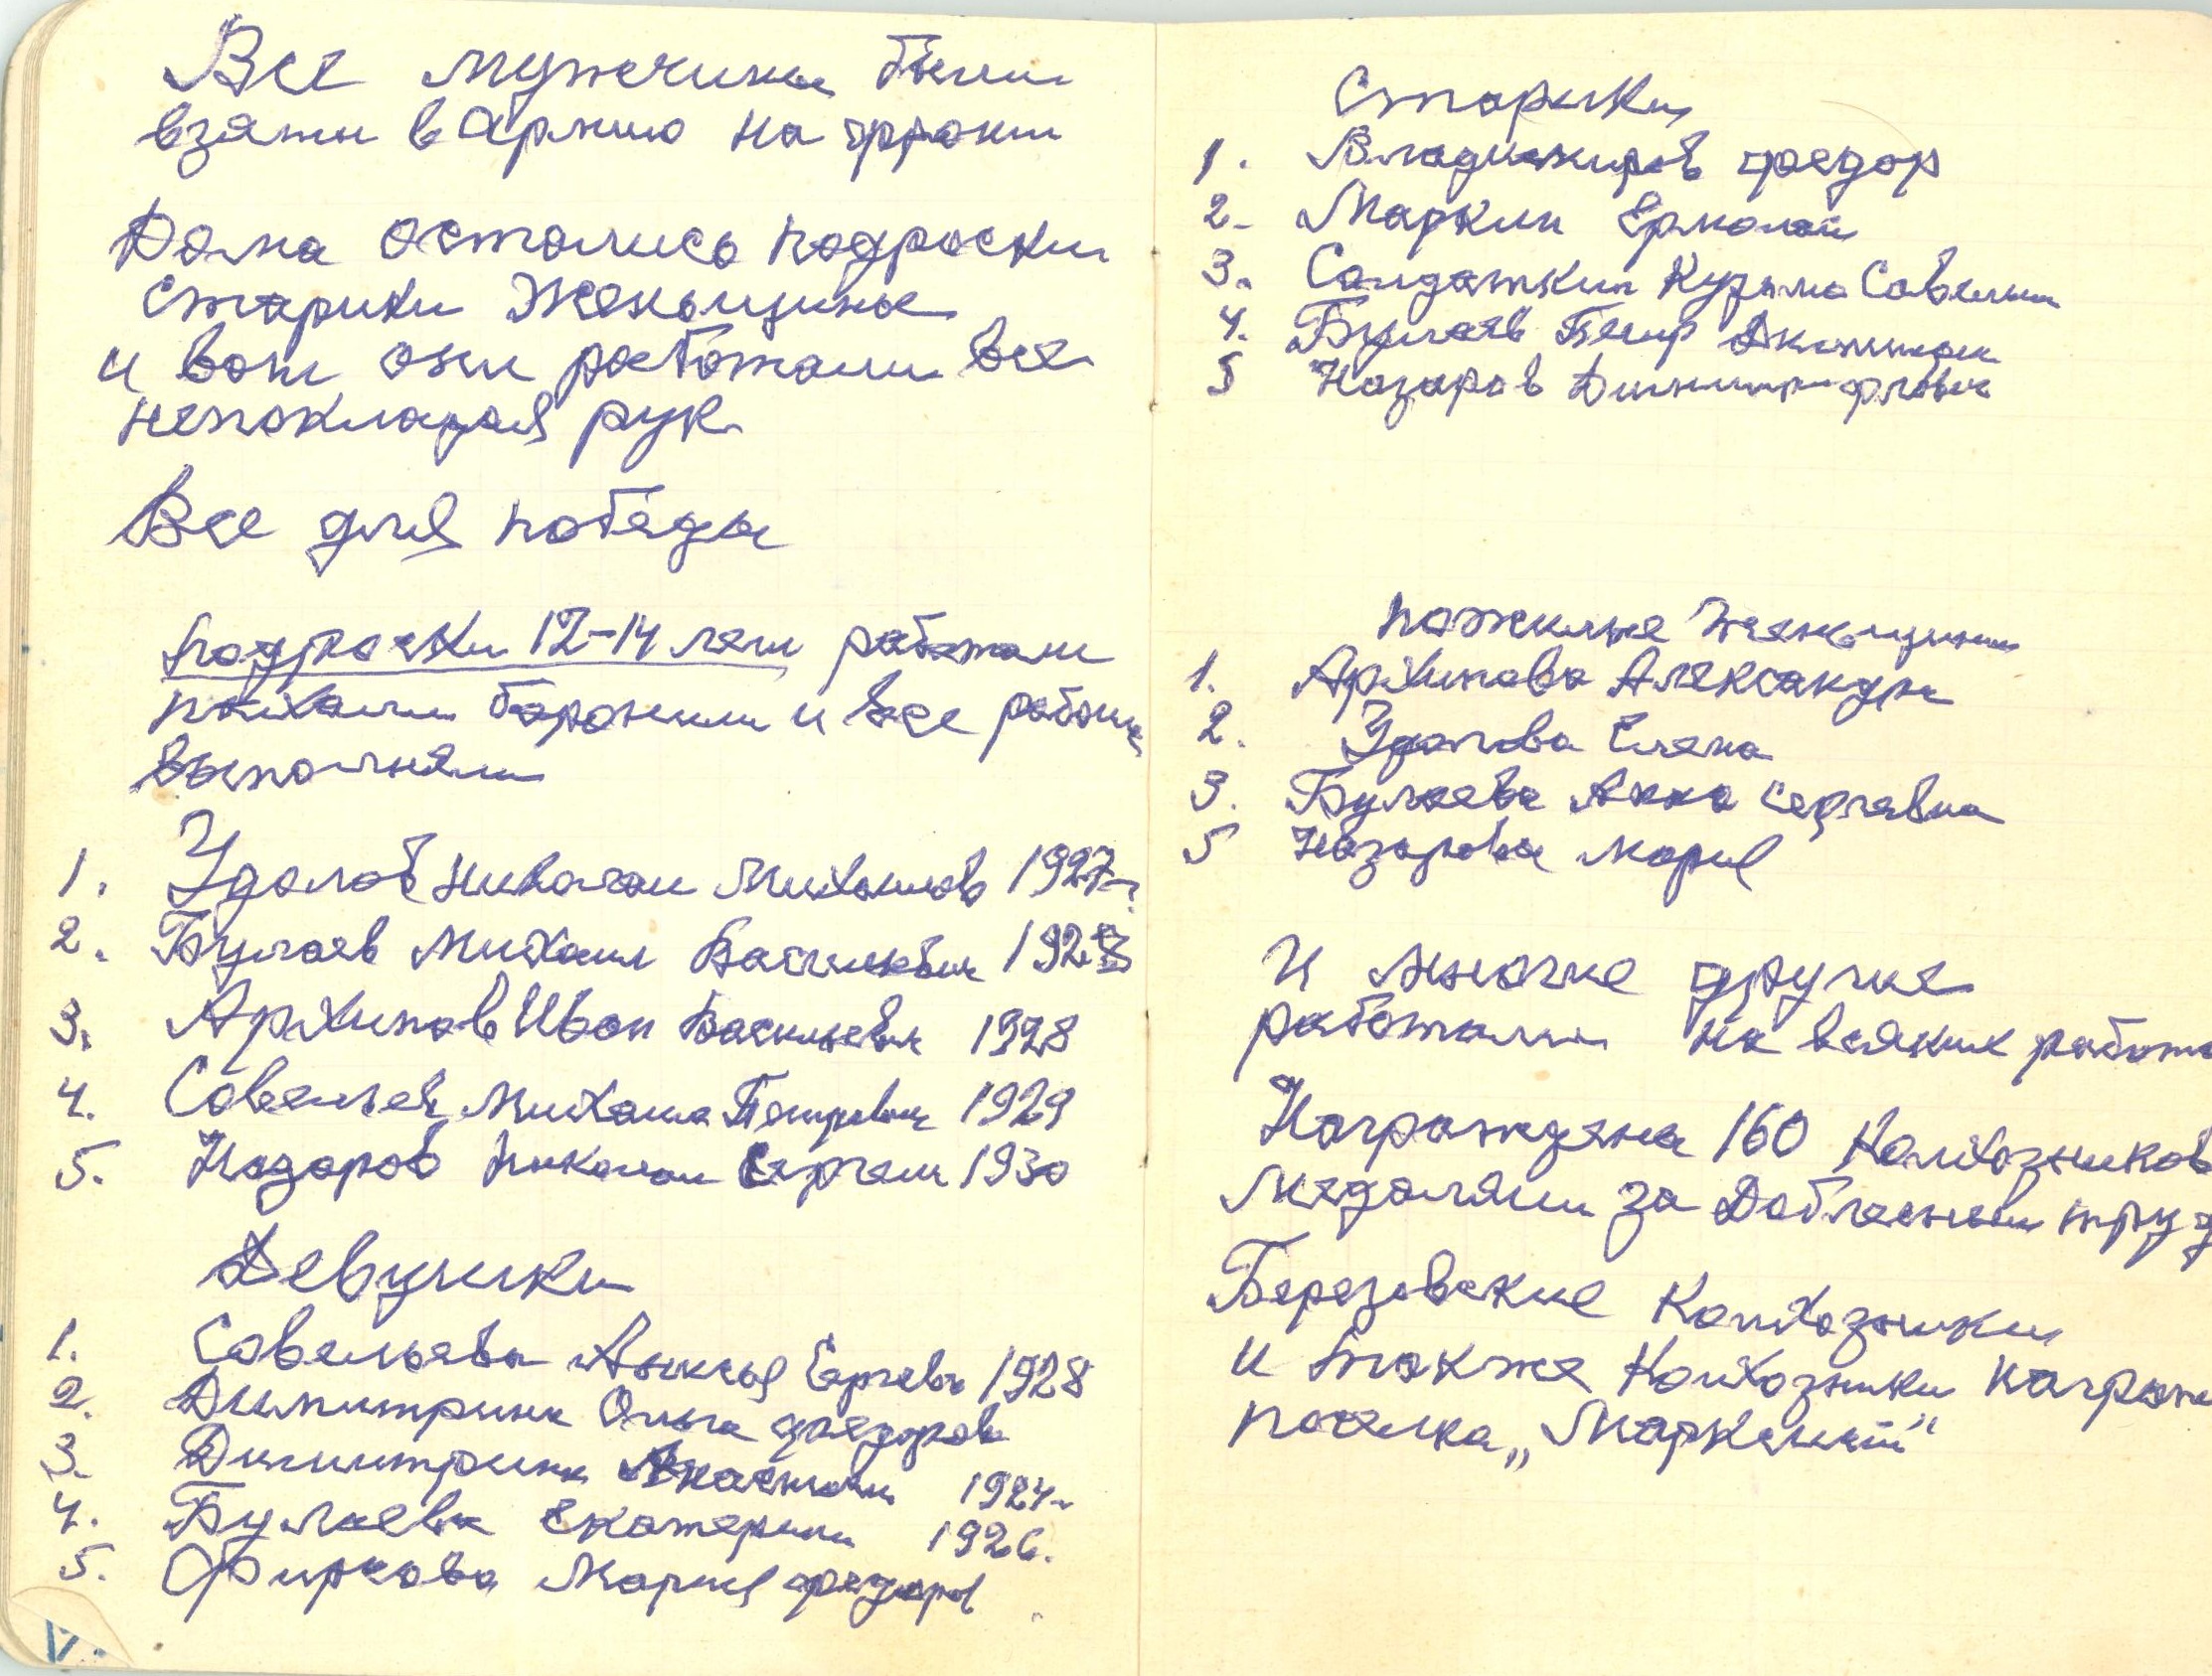 Все мужчины были
взяты в Армию на фронт
Дома остались подростки
старики Женьщины
и вот они работали все
непокладая рук
Все для победы
подростки 12-14 лет работали
пахали боронили и все работы
выполняли
1. Удалов Николаи Михаилов 1927 г.
2. Булаев Михаил Васильевич 1928
3. Архипов Иван Васильевич 1928
4. Савельев Михаил Петрович 1929
5. Назаров Николаи Сергеи 1930
Девушки
1. Савельева Анисья Сергеев 1928
2. Димитрина Ольга федоров
3. Димитрина Анастасия 1924 г
4. Булаева Екатерина 1926.
5. Фирсова Мария федоров
17.
Старики
1. Владимиров федор
2. Маркин Ермолай
3. Солдаткин Кузьма Савельи
4. Булаев Петр
5 Назаров Димитри
пожилые Женьщины
1. Архипова Александра
2. Удалова Елена
3. Булаева Анна Сергевна
5 Назарова Мария
И многие другие
работали на всяких работа
Награждены 160 Колхозников
медалями за Доблесный труд
Березовские Колхозники
и также Колхозники награж
поселка „Маркский"